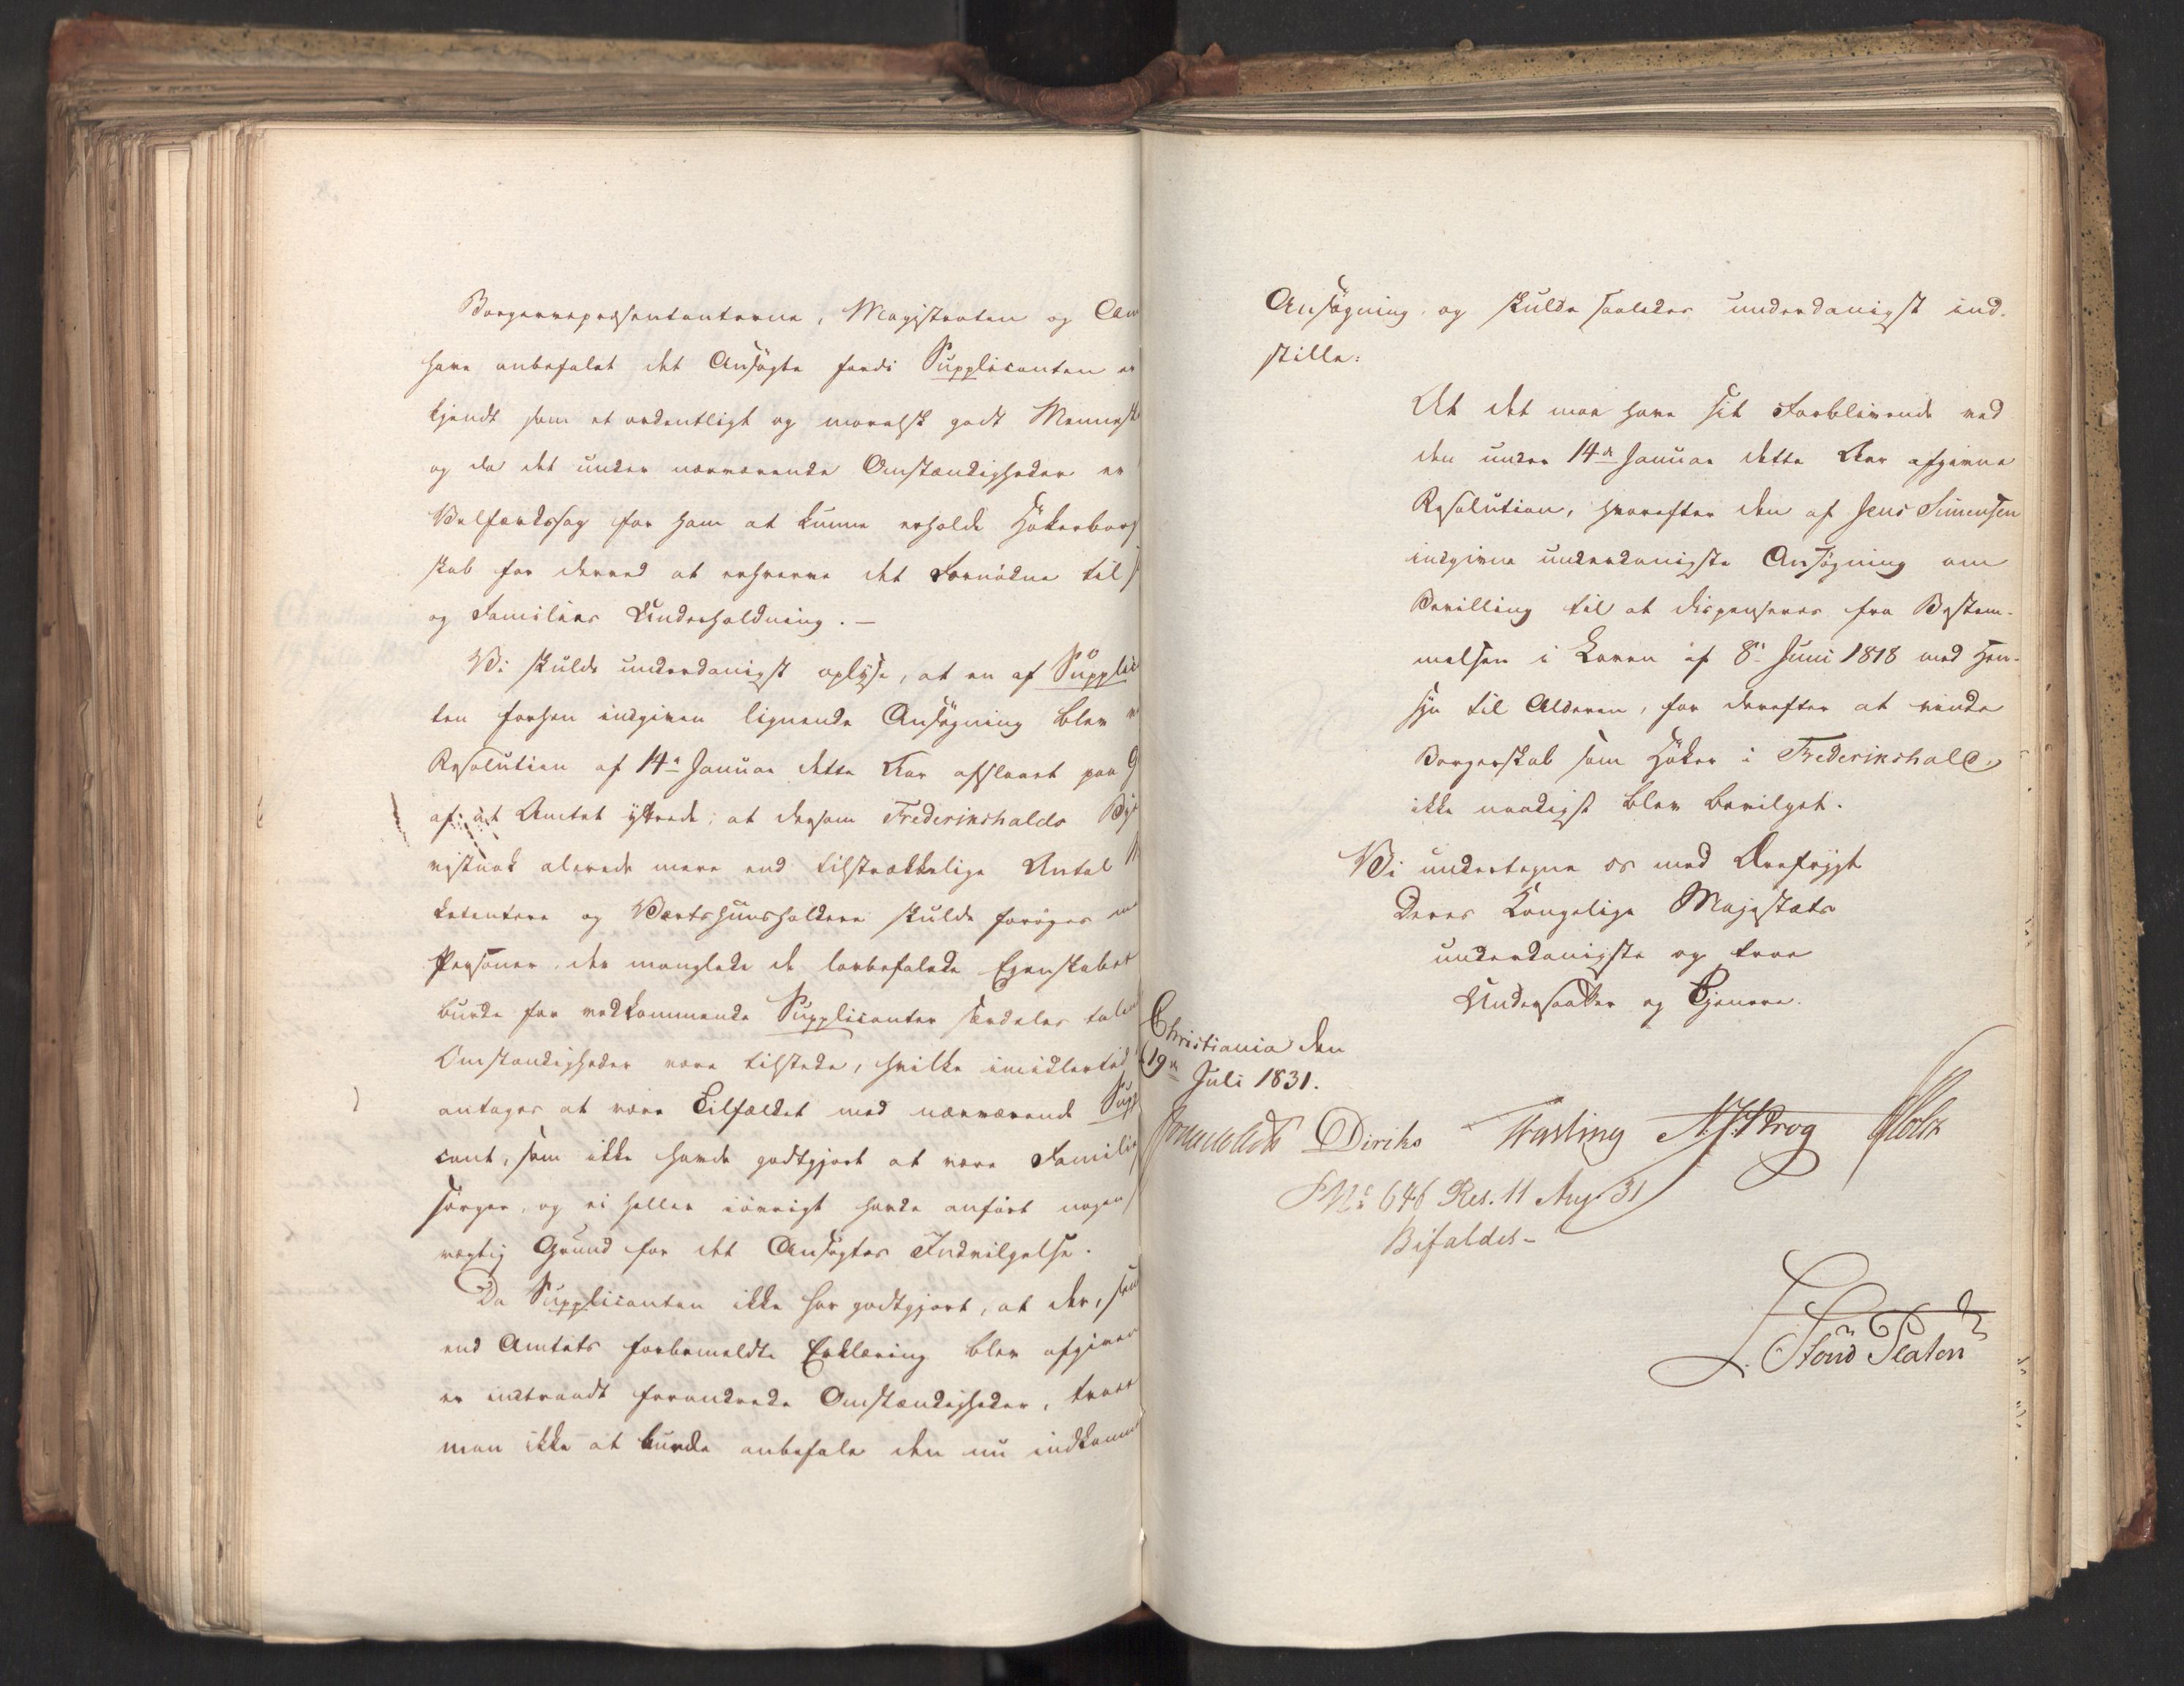 Borgerrepræsentanterne, Magistraten og
have anbefalet det Ansøgte fordi Supplicanten er
kjendt som et ordentligt og moralsk godt Mennesk
og da det under nærværende Omstændigheder er
Velfærdssag for ham at kunne erholde Høkerborg
skab for derved at erhverve det Fornødne til
og Families Underholdning. –
Vi skulde underdanigst oplyse, at en af Supplic
ten forhen indgiven lignende Ansøgning blev
Resolution af 14de Januar dette Aar afslaaet paa G
af at Amtet yttrede: at dersom Frederikshalds By
vistnok alerede mere end tilstrækkelige Antal
ketentere og Værtshuusholdere skulde forøges
Personer, der manglede de lovbefalede Egenskaber
burde for vedkommende Supplicanter særdeles tale
Omstændigheder være tilstede, hvilke imidlertid
antages at være Tilfældet med nærværende Supp
cant, som ikke havde godtgjort at være Familie
sørger, og ei heller iøvrigt havde anført nogen
vægtig Grund for det Ansøgtes Indvilgelse.
Da Supplicanten ikke har godtgjort, at der, sid
end Amtets forbemeldte Erklæring blev afgiven
er indtraadt forandrede Omstændigheder, troer
man ikke at burde anbefale den nu indkomne
Ansøgning, og skulde saaledes underdanigst ind-
stille:
At det maa have sit Forblivende ved
den under 14de Januar dette Aar afgivne
Resolution, hvorefter den af Jens Simensen
indgivne underdanigste Ansøgning om
Bevilling til at dispenseres fra Bestem-
melsen i Loven af 8de Juni 1818 med Hen-
syn til Alderen, for derefter at vinde
Borgerskab som Høker i Frederikshald,
ikke naadigst blev bevilget.
Vi undertegne os med Ærefrygt
Deres Kongelige Majestæts
underdanigste og troe
Undersaatter og Tjenere.
Christiania den
19de Juli 1831.
Diriks Fasting N. J. Krog Holst
No 646 Res. 11 Aug. 31
Bifaldes –
Platen